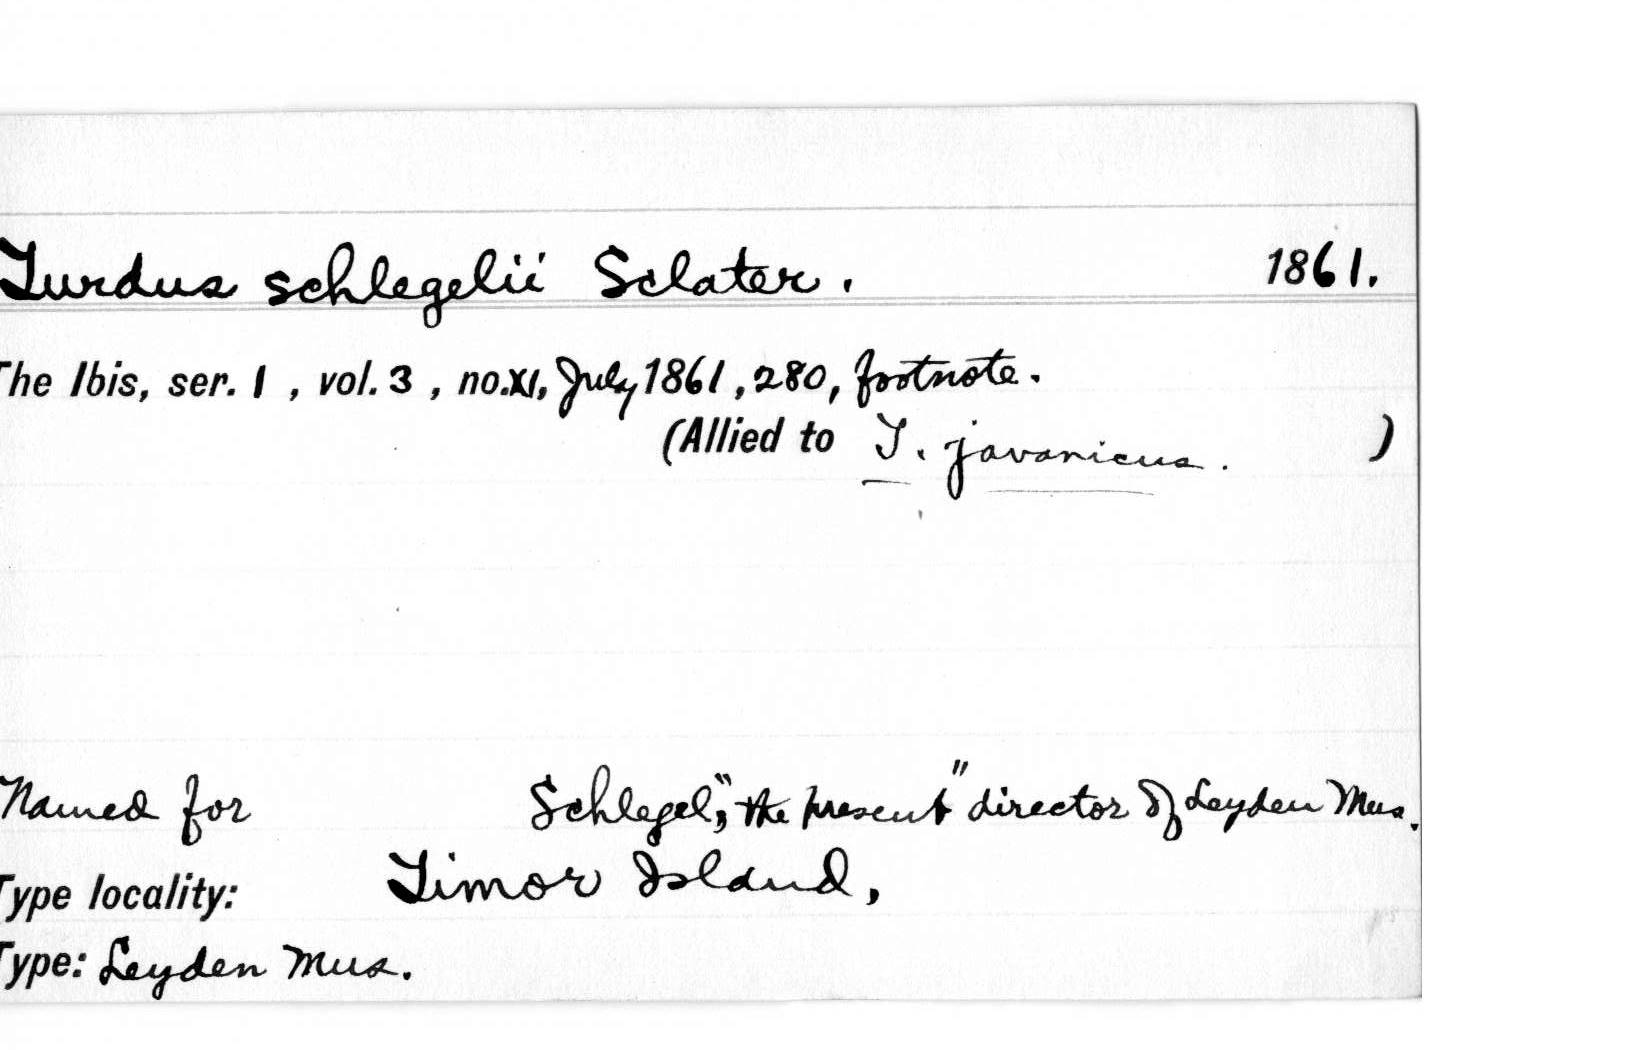 Turdus schlegelii Sclater. 1861.
The Ibis, ser. 1, vol. 3, no.XI, July 1861, 280, footnote.
(Allied to T. javanicus. )
Named for Schlegel, "the present" director of Leyden Mus.
Type locality: Timor Island,
Type: Leyden Mus.